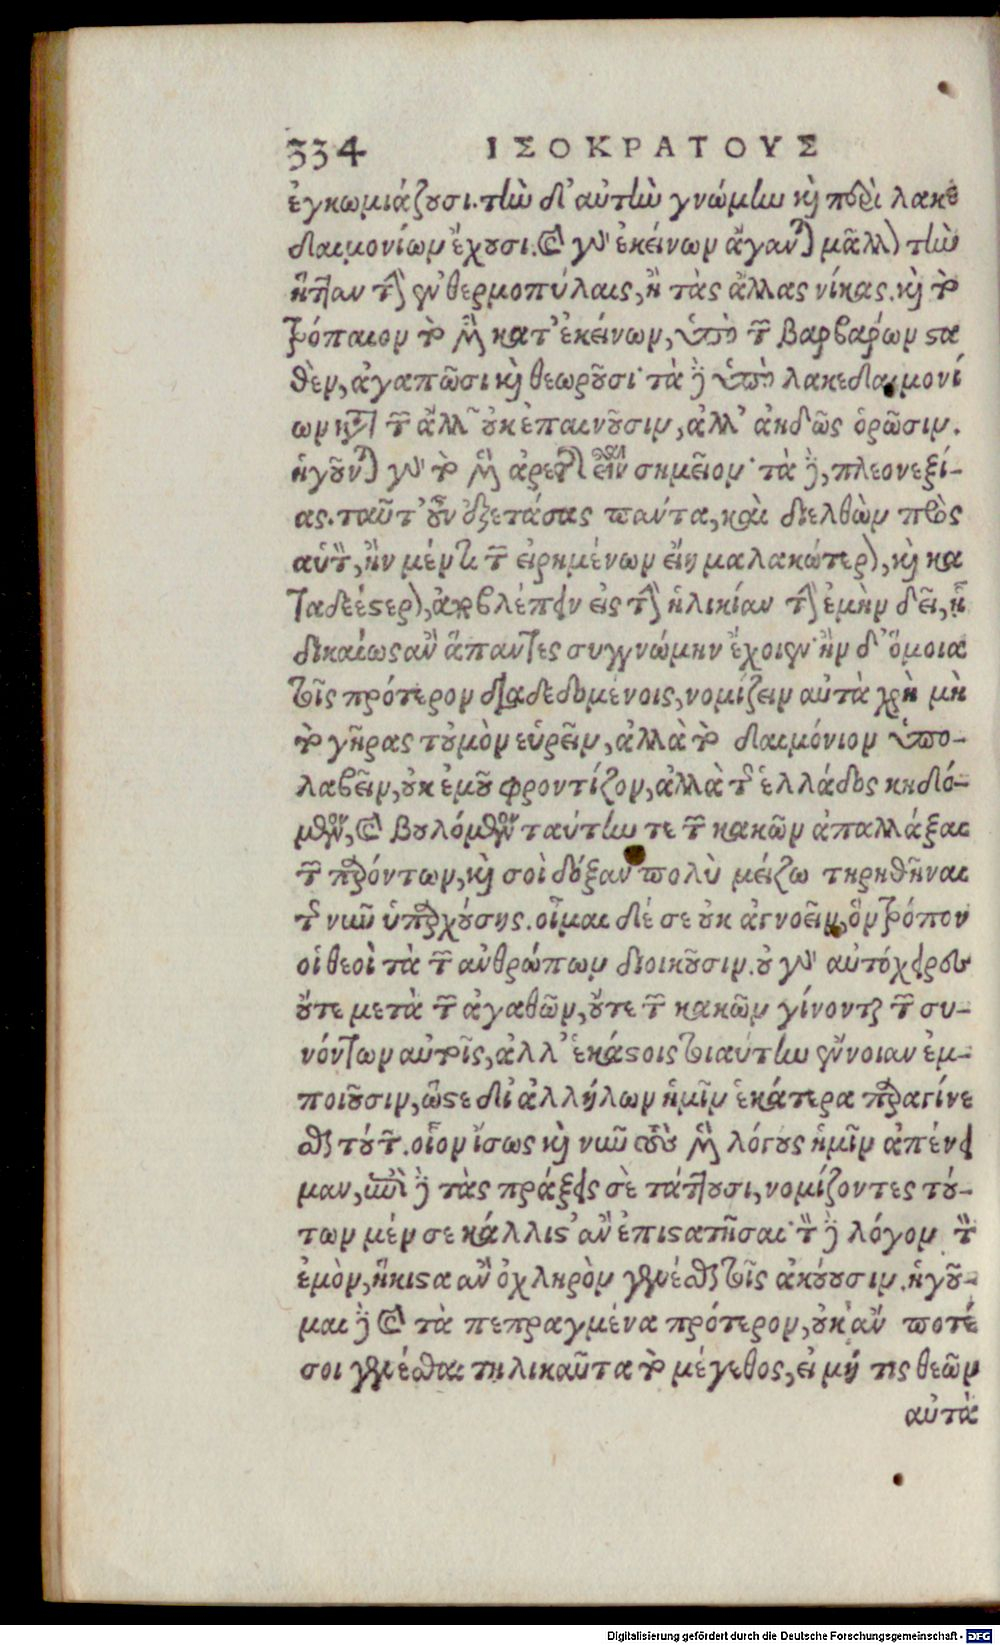 334 ΙΣΟΚΡΑΤΟΥΣ
ἐγκωμιάζουσι. τὴν δ' αὐτὴν γνώμην καὶ περὶ λακε
δαιμονίων ἔχουσι. καὶ γὰρ ἐκείνων ἄγανται μᾶλλον τὴν
ἧτταν τὴν ἐν θερμοπύλαις, ἢ τὰς ἄλλας νίκας. καὶ τὸ
τρόπαιον τὸ μὲν κατ' ἐκείνων, ὑπὸ τῶν βαρβάρων στα
θὲν, ἀγαπῶσι καὶ θεωροῦσι· τὰ δὲ ὑπὸ λακεδαιμονί
ων κατὰ τῶν ἄλλων οὐκ ἐπαινοῦσιν, ἀλλ' ἀηδῶς ὁρῶσιν.
ἡγοῦνται γὰρ τὸ μὲν ἀρετῆς εἶναι σημεῖον· τὰ δὲ, πλεονεξί-
ας. ταῦτ' οὖν ἐξετάσας πάντα, καὶ διελθὼν πρὸς
αὑτὸν, ἢν μέν τι τῶν εἰρημένων εἴη μαλακώτερον, καὶ κα
ταδεέστερον, ἀποβλέπειν εἰς τὴν ἡλικίαν τὴν ἐμὴν δεῖ, ᾗ
δικαίως ἂν ἅπαντες συγγνώμην ἔχοιεν· ἢν δ' ὅμοια
τοῖς πρότερον διαδεδομένοις, νομίζειν αὐτὰ χρὴ μὴ
τὸ γῆρας τοὐμὸν εὑρεῖν, ἀλλὰ τὸ δαιμόνιον ὑπο-
λαβεῖν, οὐκ ἐμοῦ φροντίζον, ἀλλὰ τῆς ἑλλάδος κηδό-
μενον, καὶ βουλόμενον ταύτην τε τῶν κακῶν ἀπαλλάξαι
τῶν παρόντων, καὶ σοὶ δόξαν πολὺ μείζω τηρηθῆναι
τῆς νῦν ὑπαρχούσης. οἶμαι δέ σε οὐκ ἀγνοεῖν, ὃν τρόπον
οἱ θεοὶ τὰ τῶν ἀνθρώπων διοικοῦσιν. οὐ γὰρ αὐτόχειρες
οὔτε μετὰ τῶν ἀγαθῶν, οὔτε τῶν κακῶν γίνονται τῶν συ-
νόντων αὐτοῖς, ἀλλ' ἑκάστοις τοιαύτην ἔννοιαν ἐμ-
ποιοῦσιν, ὥστε δι' ἀλλήλων ἡμῖν ἑκάτερα παραγίνε
σθαι τούτων. οἷον ἴσως καὶ νῦν τοὺς μὲν λόγους ἡμῖν ἀπένει
μαν, ἐπὶ δὲ τὰς πράξεις σὲ τάττουσι, νομίζοντες τού-
των μὲν σε κάλλιστ' ἂν ἐπιστατῆσαι· τὸν δὲ λόγον τὸν
ἐμὸν, ἥκιστα ἂν ὀχληρὸν γενέσθαι τοῖς ἀκούουσιν. ἡγοῦ-
μαι δὲ καὶ τὰ πεπραγμένα πρότερον, οὐκ ἄν ποτέ
σοι γενέσθαι τηλικαῦτα τὸ μέγεθος, εἰ μή τις θεῶν
αὐτὰ
Digitalisierung gefördert durch die Deutsche Forschungsgemeinschaft - DFG